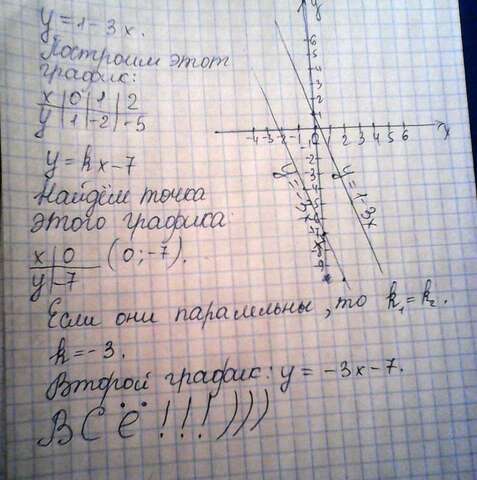 y = 1 - 3x.
Построим этот
график:
x | 0 | 1 | 2
y | 1 | -2 | -5
y = kx - 7
Найдём точка
этого графика
x | 0
y | -7
(0; -7).
Если они паралельны, то k₁ = k₂.
k = -3.
Второй график: y = -3x - 7.
ВСЁ!!!)))
y
6
5
4
3
2
1
-4 -3 -2 -1 0 1 2 3 4 5 6
x
y = 1 - 3x